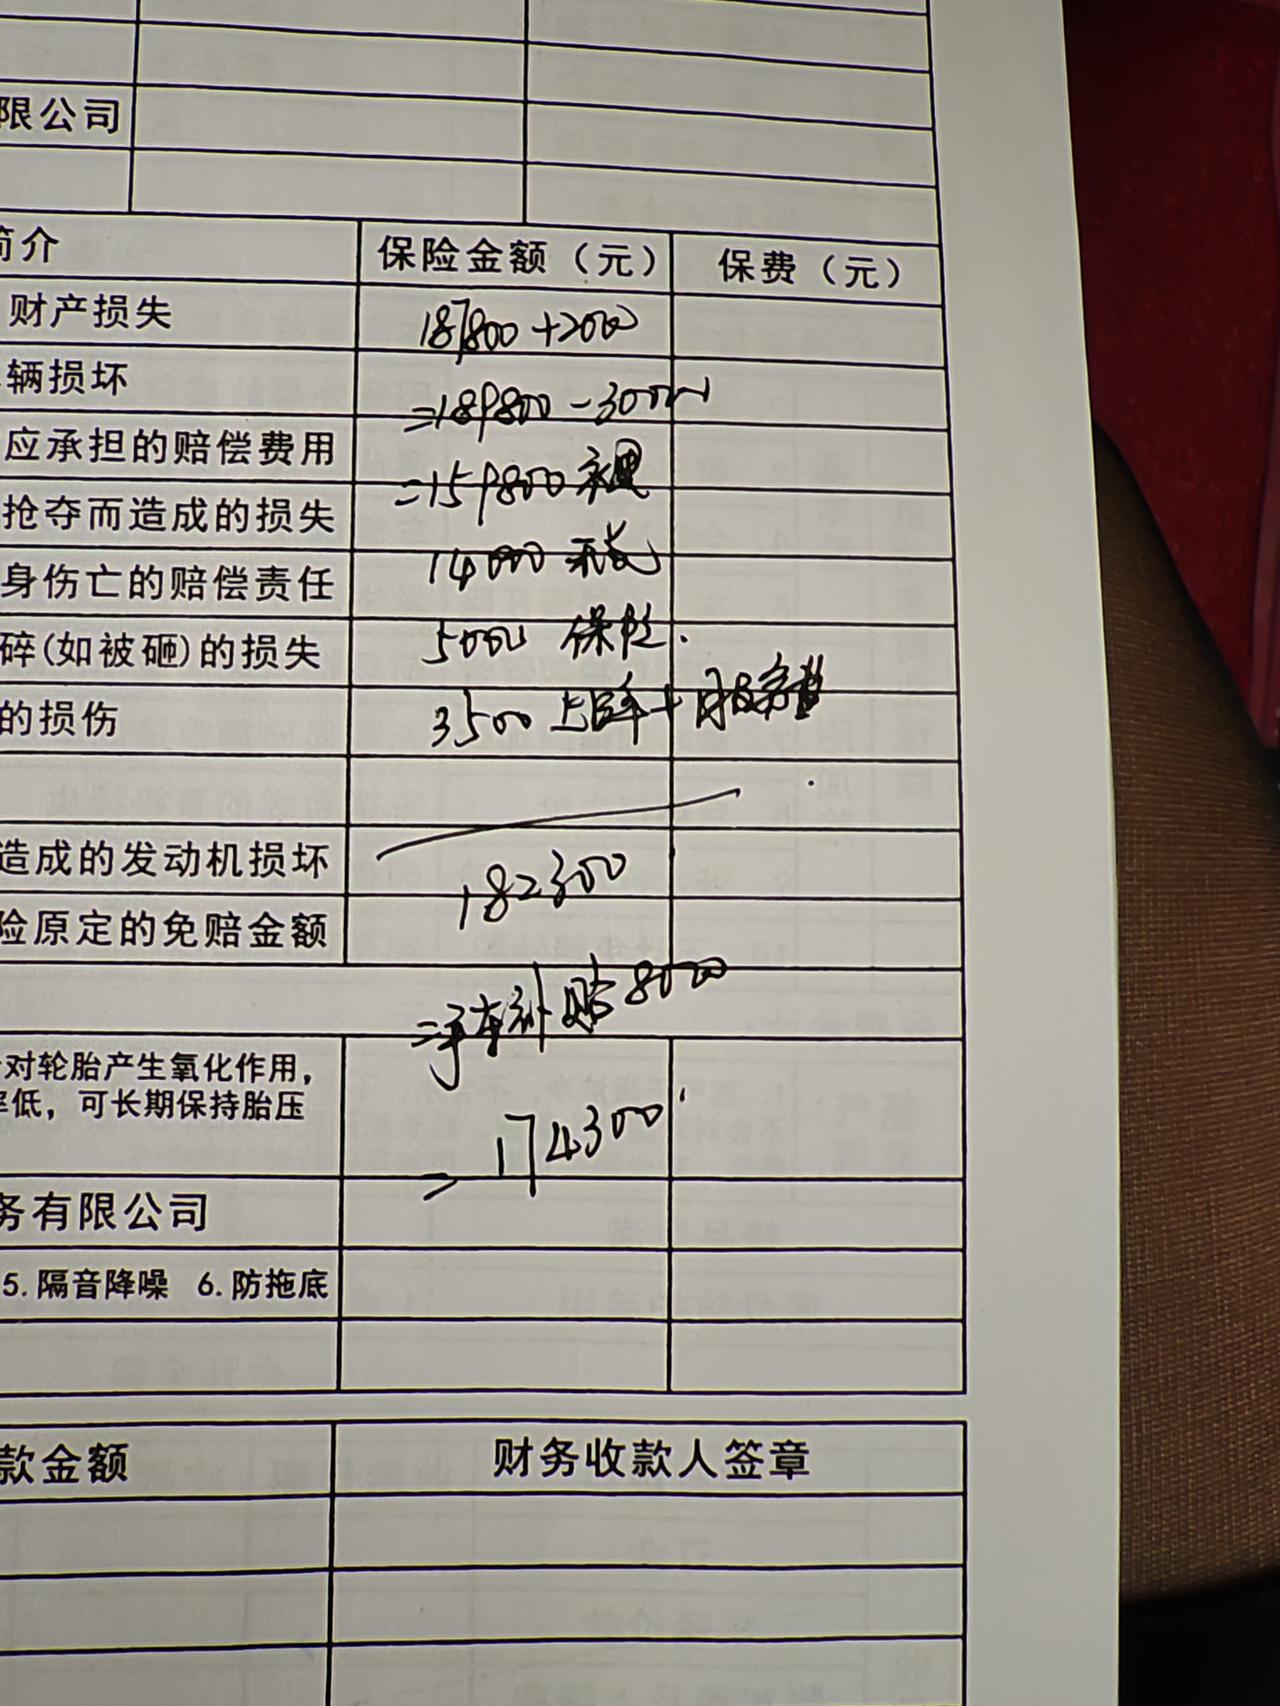 限公司
简介 保险金额（元） 保费（元）
财产损失 187800+2000
辆损坏 =189800-30000
应承担的赔偿费用
=159800
抢夺而造成的损失
14000
身伤亡的赔偿责任
碎(如被砸)的损失 5000 保险.
的损伤 3500 上牌+
造成的发动机损坏
182300
险原定的免赔金额
= 补贴8000
对轮胎产生氧化作用，
率低，可长期保持胎压
= 174300
务有限公司
5.隔音降噪 6.防拖底
款金额 财务收款人签章